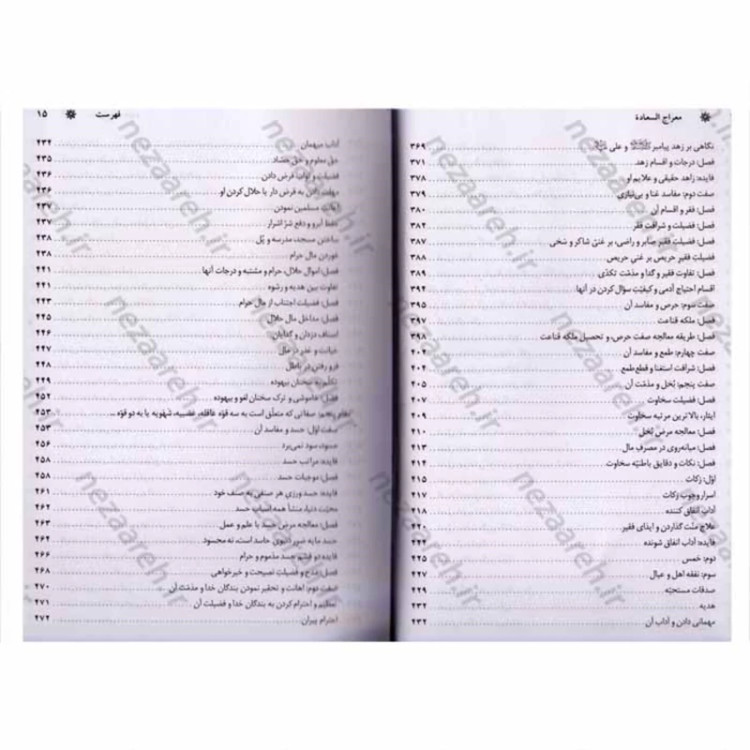 معراج السعادة
نگاهی بر زهد پیامبر و علی ۳۶۹
فصل: درجات و اقسام زهد ۳۷۱
فایده: زاهد حقیقی و علایم او ۳۷۸
صفت دوم: مفاسد غنا و بی‌نیازی ۳۷۹
فصل: فقر و اقسام آن ۳۸۰
فصل: فضیلت و شرافت فقر ۳۸۲
فصل: فضیلتِ فقیر صابر و راضی، بر غنیِ شاکر و سخی ۳۸۷
فضیلتِ فقیر حریص بر غنیِ حریص ۳۸۸
فصل: تفاوت فقیر و گدا و مذمّت تکدّی ۳۸۹
اقسام احتیاج آدمی و کیفیّتِ سؤال کردن در آنها ۳۹۴
صفت سوم: حرص و مفاسد آن ۳۹۵
فصل: ملکه قناعت
فصل: طریقه معالجه صفت حرص، و تحصیل ملکه قناعت ۳۹۸
صفت چهارم: طمع و مفاسد آن
فصل: شرافت استغنا و قطع طمع
صفت پنجم: بُخل و مذمّت آن ۴۰۵
فصل: فضیلت سخاوت
ایثار، بالاترین مرتبه سخاوت ۴۰۹
فصل: معالجه مرض بُخل ۴۱۰
فصل: میانه‌روی در مصرفِ مال ۴۱۳
فصل: نکات و دقایق باطنیّه سخاوت ۴۱۴
اوّل: زکات ۴۱۵
اسرار وجوب زکات ۴۱۷
آداب انفاق کننده ۴۱۸
علاج منّت گذاردن و ایذای فقیر
فایده: آداب انفاق شونده
دوم: خمس ۴۲۵
سوم: نفقه اهل و عیال ۴۲۷
صدقات مستحبّه ۴۲۹
هدیه ۴۳۲
مهمانی دادن و آداب آن ۴۳۲
فهرست ۱۵
آداب میهمان ۴۳۴
حقّ معلوم و حقّ حَصاد ۴۳۵
فضیلت و ثواب قرض دادن ۴۳۶
مهلت دادن به قرض دار یا حلال کردن او ۴۳۶
مسلمین نمودن ۴۳۷
آبرو و دفع شرّ اشرار
ساختن مسجد، مدرسه و پُل ۴۳۸
خوردن مال حرام ۴۳۸
فصل: اموال حلال، حرام و مشتبه و درجات آنها ۴۴۱
تفاوت بین هدیه و رشوه ۴۴۱
فصل: فضیلت اجتناب از مال حرام ۴۴۳
فصل: مداخل مال حلال ۴۴۵
اصناف دزدان و گدایان ۴۴۶
خیانت و غدر در مال ۴۴۷
فرو رفتن در باطل ۴۴۸
تکلّم به سخنان بیهوده ۴۴۹
فصل: خاموشی و ترک سخنان لغو و بیهوده ۴۵۲
صفاتی که متعلّق است به سه قوّه عاقله، غضبیه، شهویه یا به دو قوّه ... ۴۵۳
صفت اوّل: حسد و مفاسد آن ۴۵۳
حسود، سود نمی‌برد ۴۵۶
فایده: مراتب حسد ۴۵۸
فصل: موجبات حسد ۴۵۸
فایده: حسد ورزی هر صنفی به صنف خود ۴۶۱
محبّت دنیا، منشأ همه اسباب حسد ۴۶۲
فصل: معالجه مرض حسد با علم و عمل ۴۶۳
حسد مایه ضرر دنیوی حاسد است نه محسود ۴۶۴
فایده: دو قسم حسد مذموم و حرام ۴۶۶
فصل: مدح و فضیلتِ نصیحت و خیرخواهی ۴۶۸
صفت دوم: اهانت و تحقیر نمودن بندگان خدا و مذمّت آن ۴۷۰
تعظیم و احترام کردن به بندگان خدا و فضیلت آن ۴۷۱
احترام پیران ۴۷۲
nezaareh.ir
nezaareh.ir
nezaareh.ir
nezaareh.ir
nezaareh.ir
nezaareh.ir